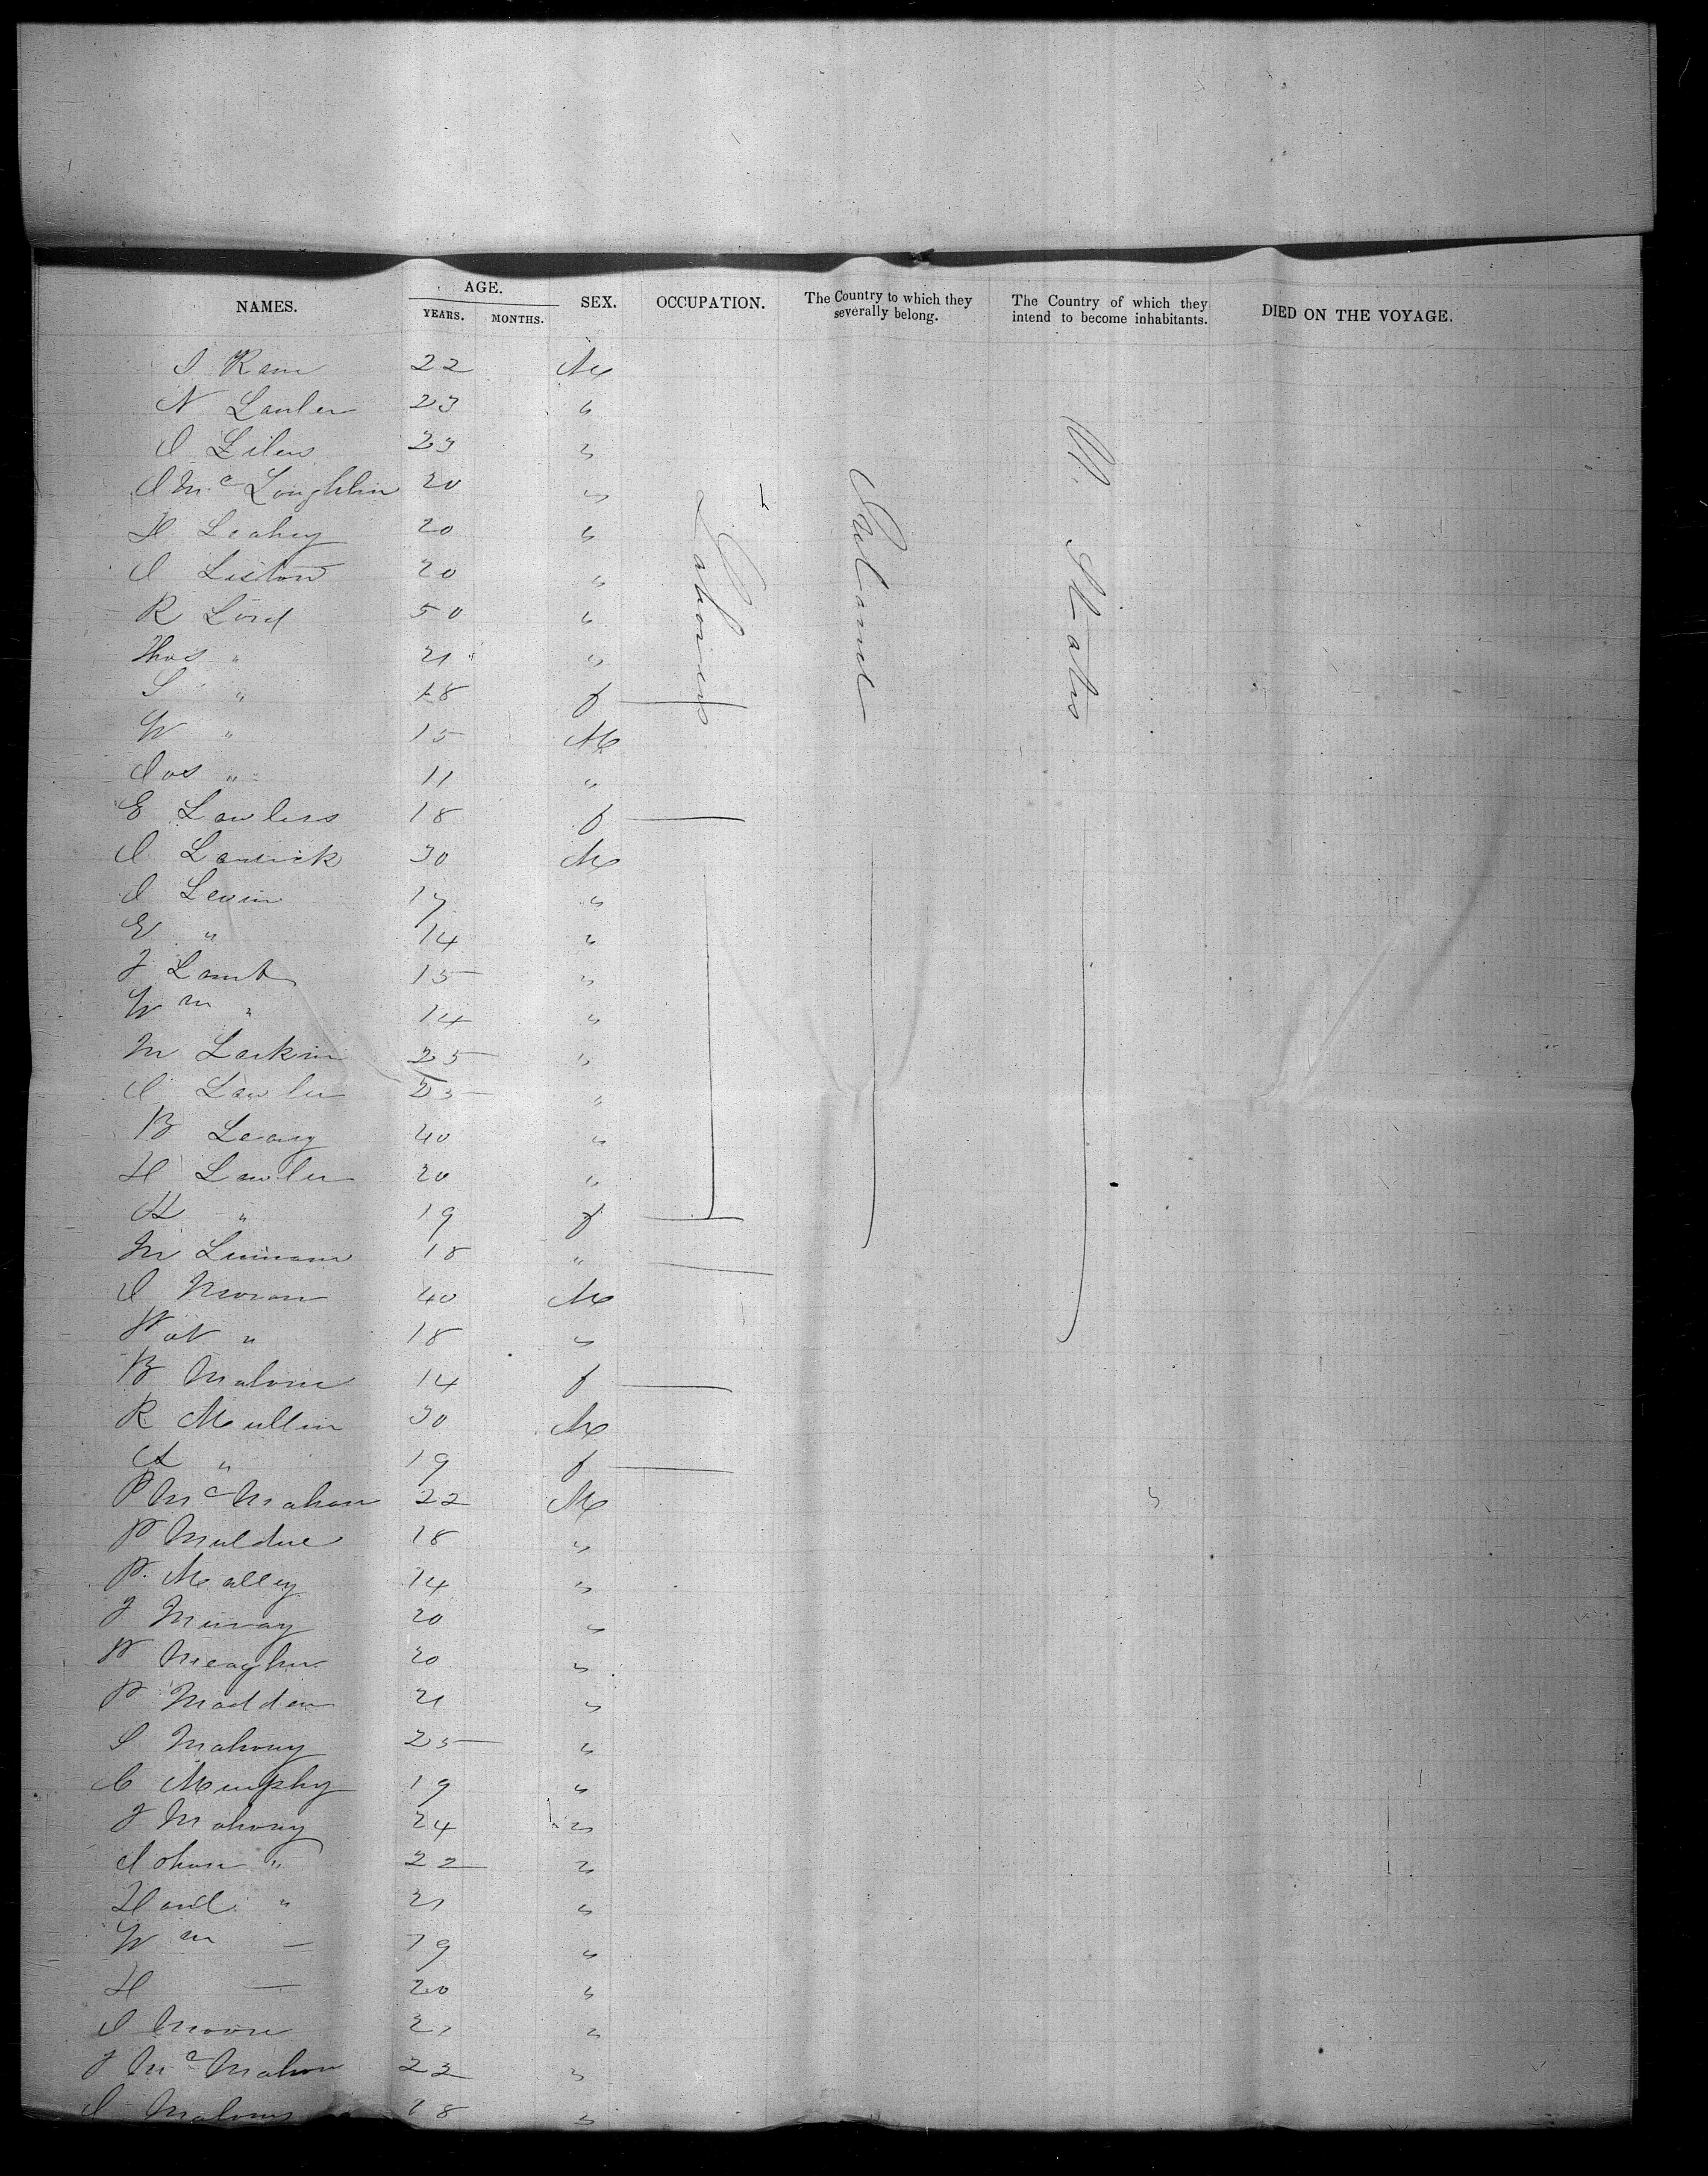 NAMES. AGE. SEX. OCCUPATION. The Country to which they severally belong. The Country of which they intend to become inhabitants. DIED ON THE VOYAGE.
YEARS. MONTHS.
J Kane 22 M
N Lawler 23 "
J 23 "
J McLoughlin 20 "
H Leahey 20 "
J Liston 20 "
R Lord 50 "
Thos " 21 "
S " 18 f —
W " 15 M
Jas " 11 "
E Lawless 18 f —
J 30 M
J Levin 17 "
E " 14 "
J Lamb 15 "
Wm " 14 "
M Larkin 25 "
J Lawler 25 "
B Leary 40 "
H Lawler 20 "
" 19 f —
M 18 " —
J Moran 40 M
Pat " 18 "
B Malone 14 f —
R Mullin 30 M
" 19 f —
P McMahon 22 M
P Muldue 18 "
P. Malley 14 "
J Murray 20 "
P Meagher 20 "
P Madden 21 "
S Mahony 25 "
C Murphy 19 "
J Mahony 24 "
John " 22 "
" 21 "
Wm — 19 "
H — 20 "
J Moore 21 "
J McMahon 22 "
J 18 "
Laborers
Ireland
U. States